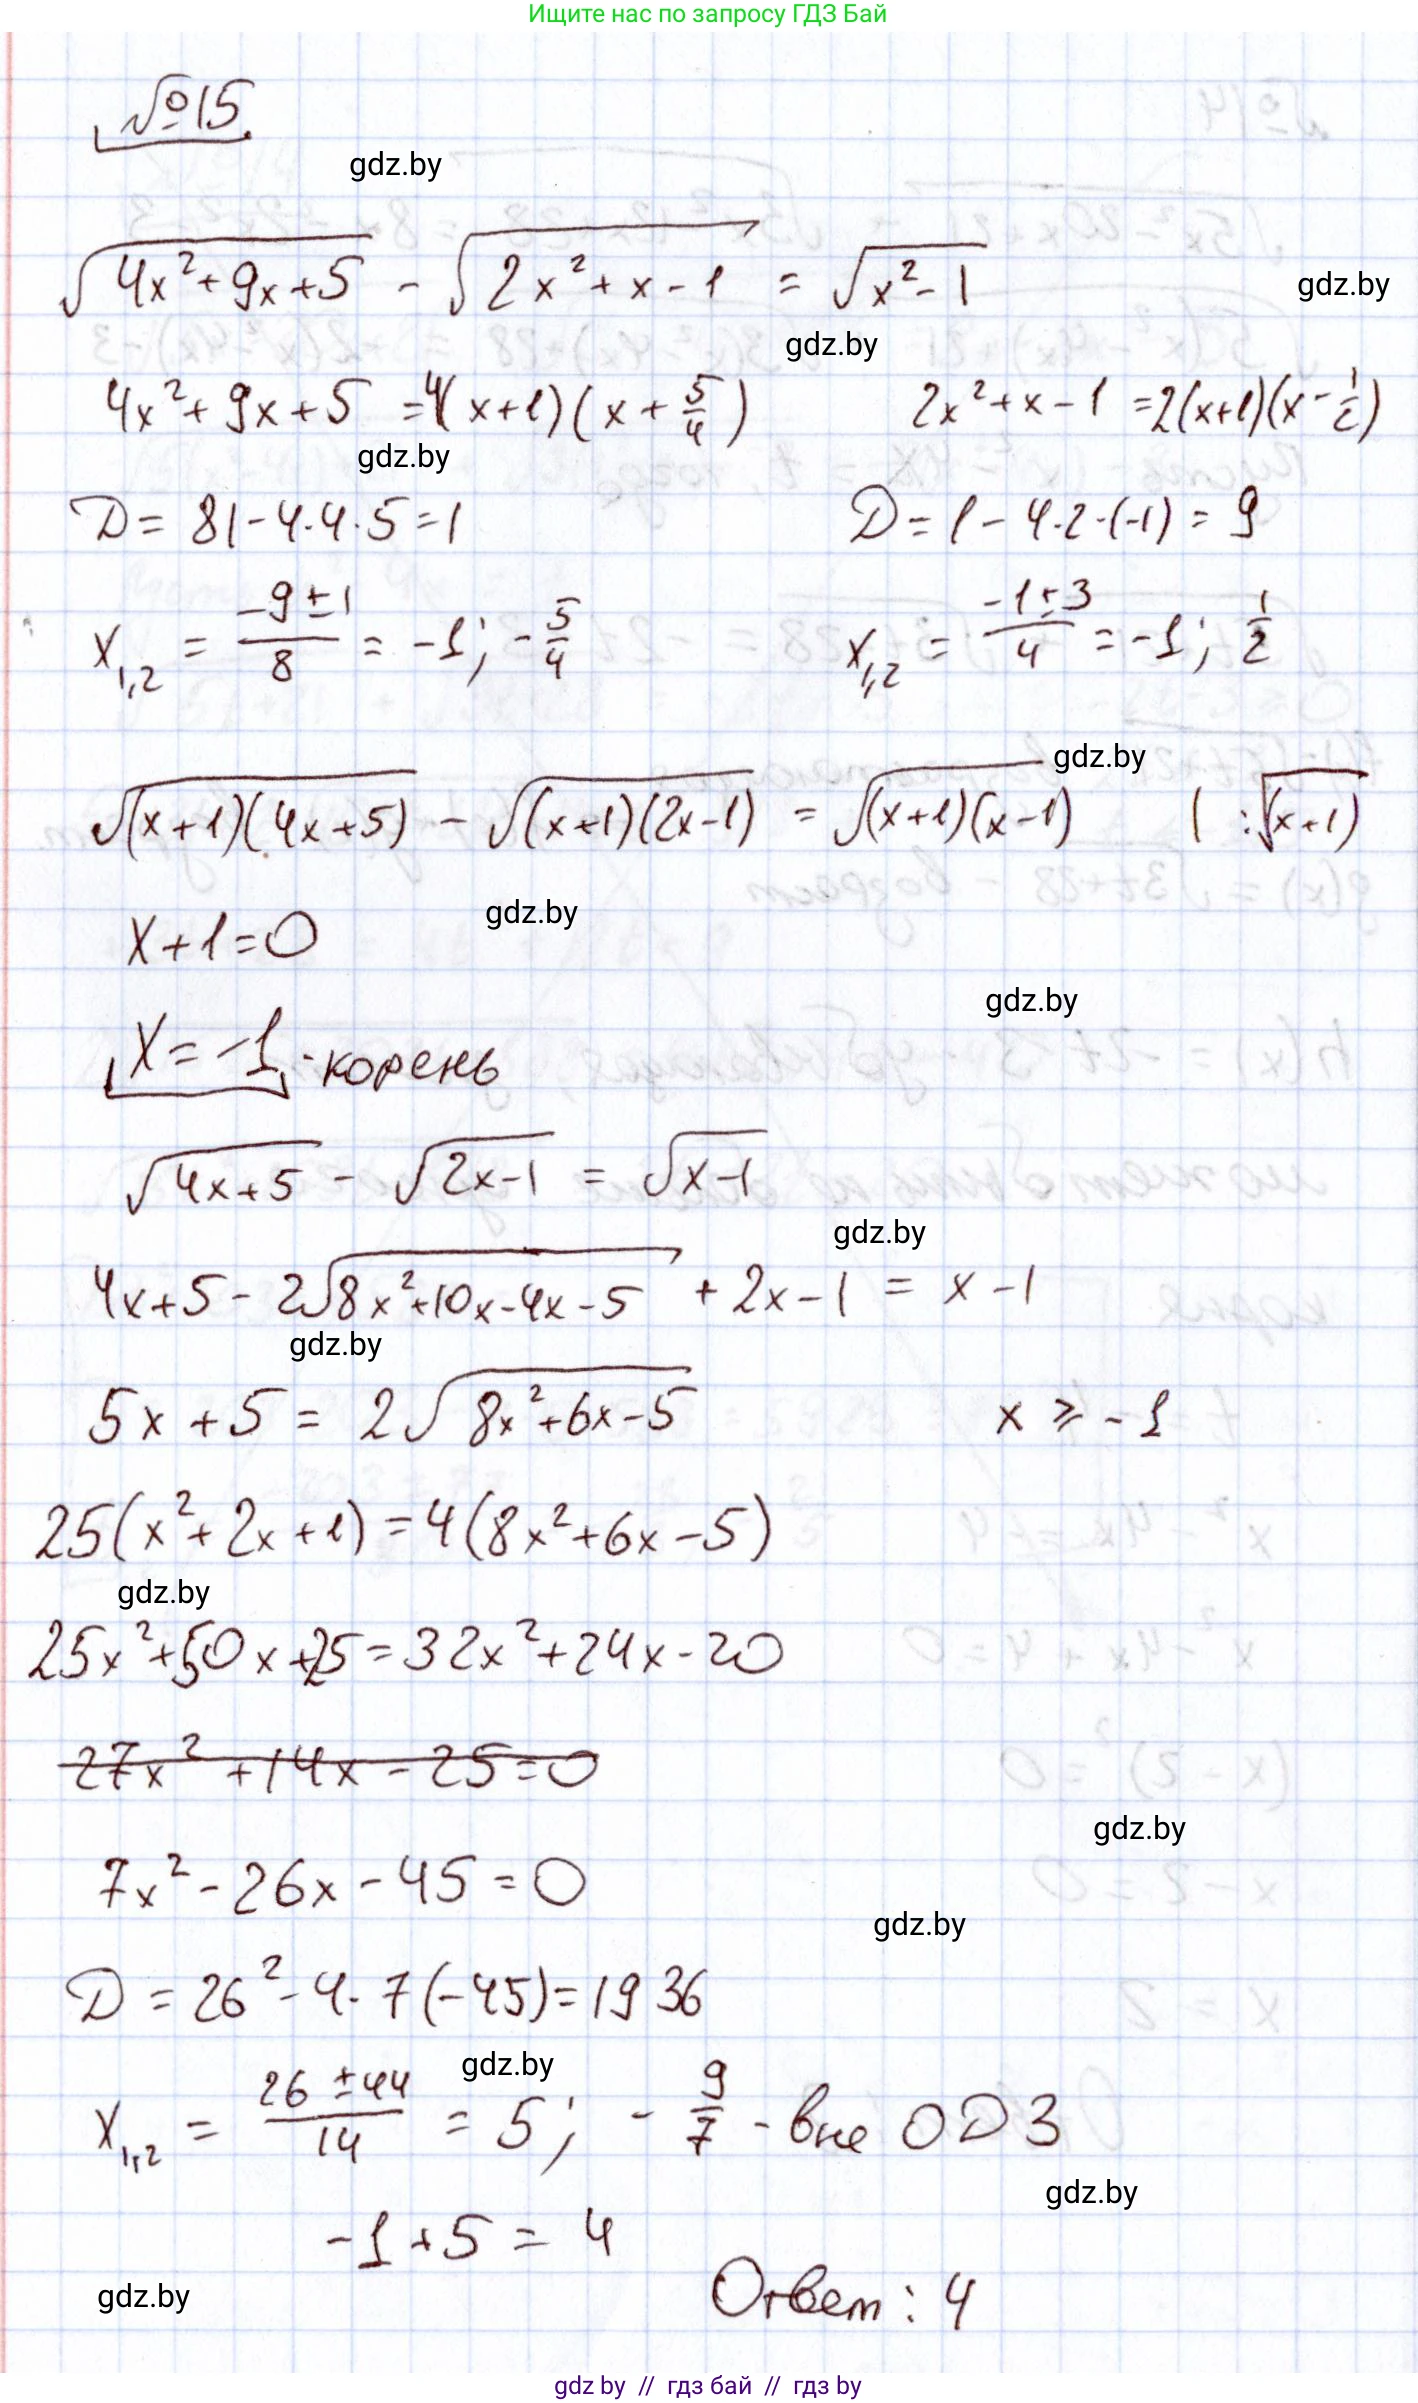 Ищите нас по запросу ГДЗ Бай
№15.
gdz.by
√(4x²+9x+5) - √(2x²+x-1) = √(x²-1)
gdz.by
gdz.by
4x²+9x+5 =4(x+1)(x+5/4) 2x²+x-1 =2(x+1)(x-1/2)
gdz.by
D= 81-4·4·5=1 D=1-4·2·(-1)= 9
x₁,₂ = (-9±1)/8 = -1; -5/4 x₁,₂ = (-1±3)/4 = -1; 1/2
gdz.by
√((x+1)(4x+5)) - √((x+1)(2x-1)) = √((x+1)(x-1)) | :√(x+1)
gdz.by
x+1=0
gdz.by
x=-1 - корень
√(4x+5) - √(2x-1) = √(x-1)
gdz.by
4x+5- 2√(8x²+10x-4x-5) + 2x-1 = x-1
gdz.by
5x+5= 2√(8x²+6x-5) x ≥ -1
25(x²+2x+1)=4(8x²+6x-5)
gdz.by
25x²+50x+25=32x²+24x-20
27x²+14x-25=0
gdz.by
7x²-26x-45=0
gdz.by
D=26²-4·7(-45)=1936
gdz.by
x₁,₂ = (26±44)/14 = 5; -9/7 - вне ОДЗ
gdz.by
-1+5= 4
gdz.by
Ответ: 4
gdz by // гдз бай // гдз by